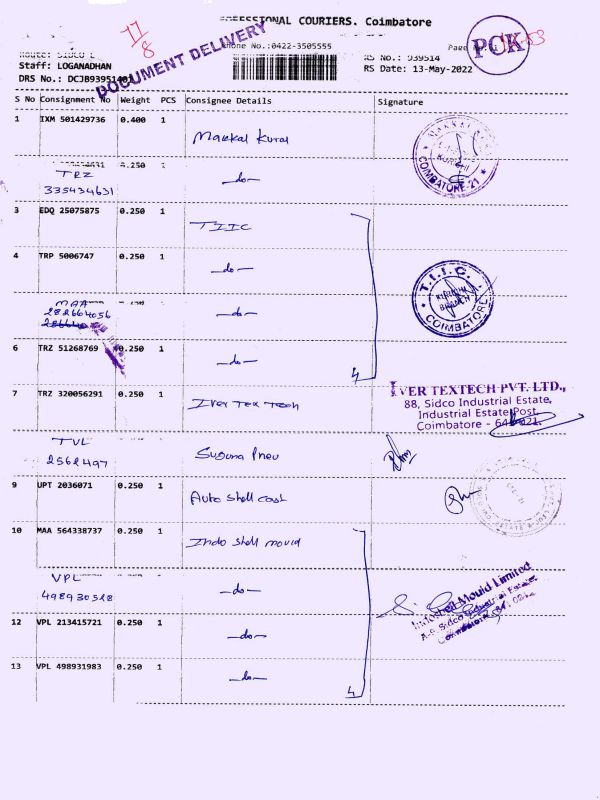 PROFESSIONAL COURIERS. Coimbatore
Phone No.:0422-3505555
11/8
DOCUMENT DELIVERY
PCK
Page No.
Route: SIDCO L
Staff: LOGANADHAN
DRS No.: DCJB939514
RS No.: 939514
RS Date: 13-May-2022
S No Consignment No Weight PCS Consignee Details Signature
1 IXM 501429736 0.400 1 Makkal Kural
COIMBATORE-21
0.250 1
TRZ
335434631 —do—
3 EDQ 25075875 0.250 1 TIIC
4 TRP 5006747 0.250 1 —do—
T.I.I.C.
KURICHI
BRANCH
COIMBATORE
MAA
282664056 —do—
6 TRZ 51268769 0.250 1 —do—
4
7 TRZ 320056291 0.250 1 Iver Tex Tech
IVER TEXTECH PVT. LTD.,
88, Sidco Industrial Estate,
Industrial Estate Post,
Coimbatore - 641021.
TVL
2562497 Suguna Pneu
9 UPT 2036071 0.250 1 Auto Shell Cast
10 MAA 564338737 0.250 1 Indo Shell mould
VPL
498930528 —do—
Indoshell Mould Limited
A-9, Sidco Industrial Estate
Coimbatore
12 VPL 213415721 0.250 1 —do—
13 VPL 498931983 0.250 1 —do—
4